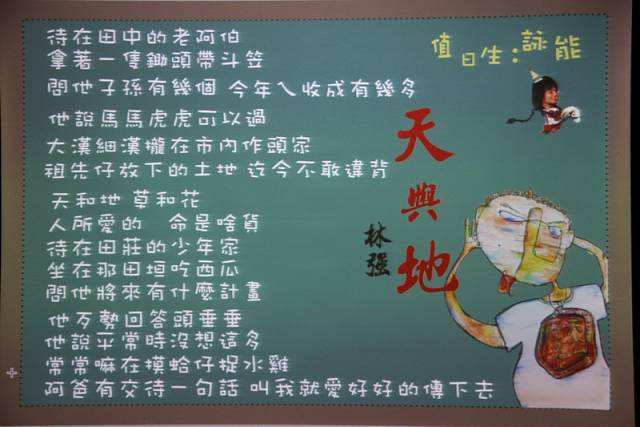 待在田中的老阿伯
拿著一隻鋤頭帶斗笠
問他子孫有幾個 今年ㄟ收成有幾多
他說馬馬虎虎可以過
大漢細漢攏在市內作頭家
祖先仔放下的土地 迄今不敢違背
天和地 草和花
人所愛的 命是啥貨
待在田莊的少年家
坐在那田垣吃西瓜
問他將來有什麼計畫
他歹勢回答頭垂垂
他說平常時沒想這多
常常嘛在摸蛤仔捉水雞
阿爸有交待一句話 叫我就愛好好的傳下去
天與地
林强
值日生:詠能